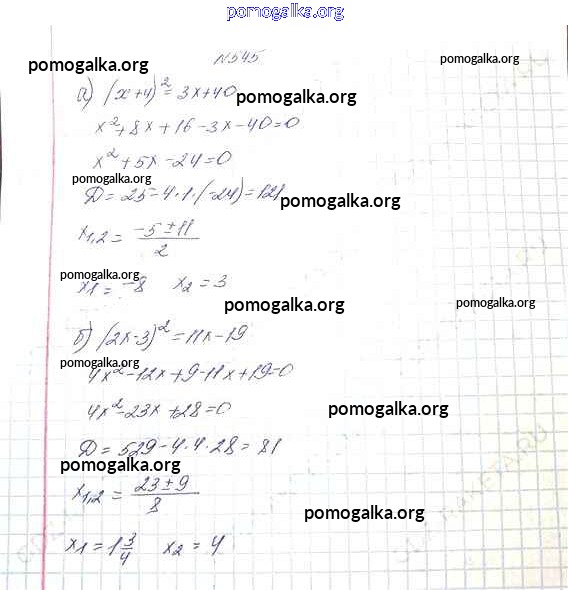 pomogalka.org
№545
pomogalka.org
pomogalka.org
а) (x+4)² = 3x+40
pomogalka.org
x²+8x+16-3x-40=0
x²+5x-24=0
pomogalka.org
Д=25-4·1·(-24)=121
pomogalka.org
x1,2 = (-5±11)/2
pomogalka.org
x1=-8 x2=3
pomogalka.org
pomogalka.org
б) (2x-3)²=11x-19
pomogalka.org
4x²-12x+9-11x+19=0
4x²-23x+28=0
pomogalka.org
Д=529-4·4·28=81
pomogalka.org
x1,2 = (23±9)/8
pomogalka.org
x1=1 3/4 x2=4